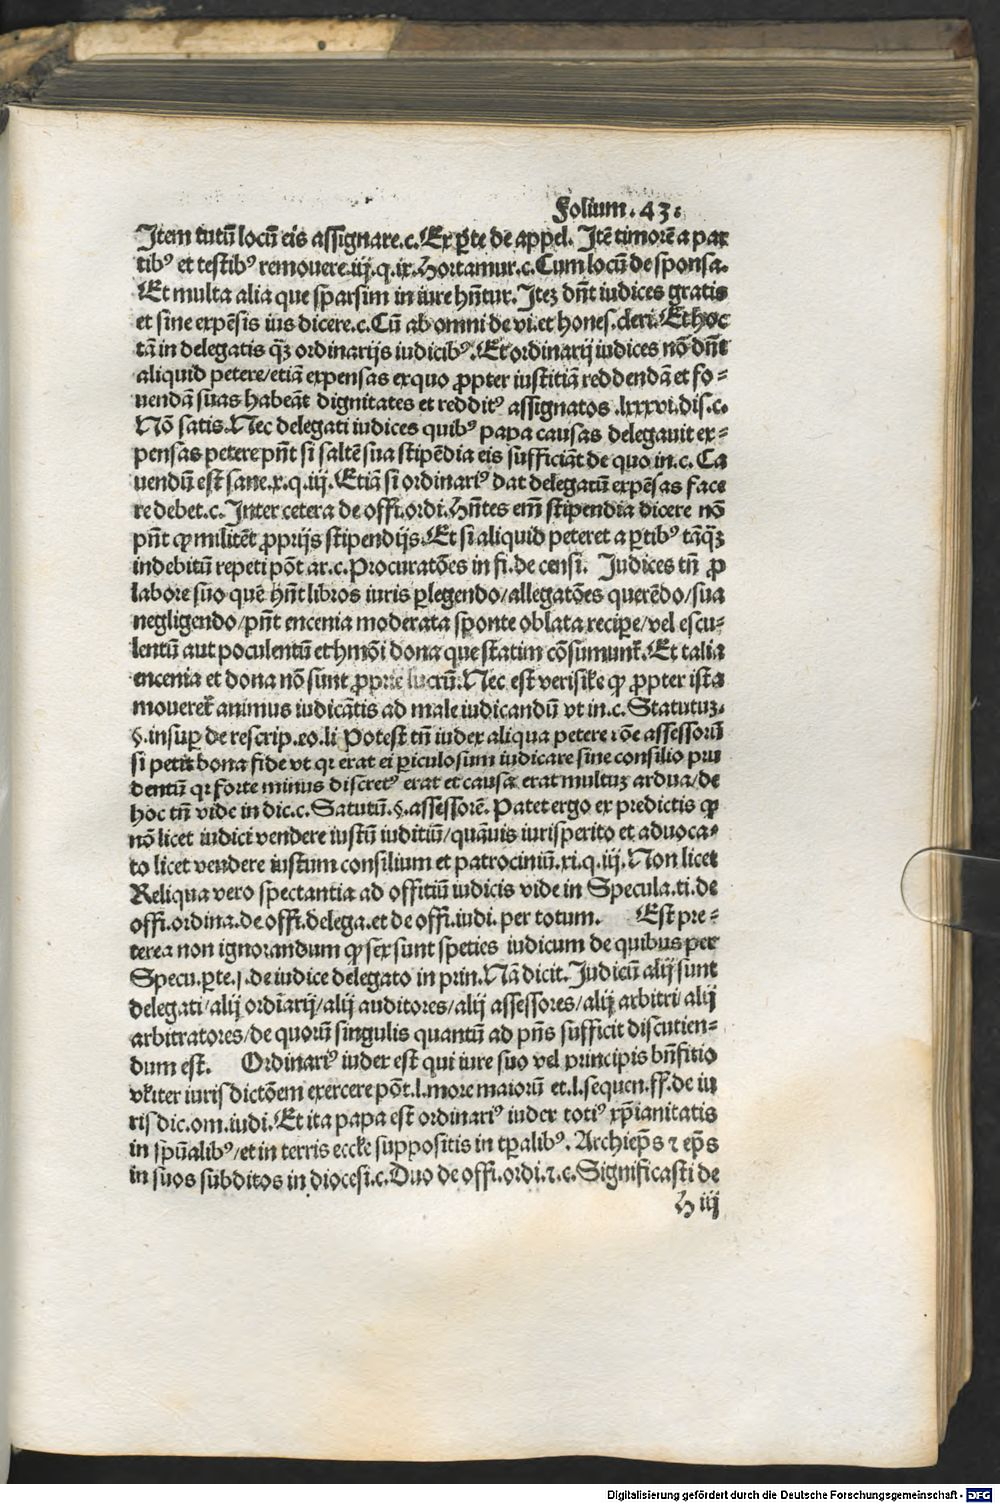 Folium. 43:
Item tutū locū eis assignare.c.Ex ꝑte de appel. Itē timorē a par
tibꝰ et testibꝰ remouere.iij.q.ix.Hortamur.c.Cum locū de sponsa.
Et multa alia que sparsim in iure hn̄tur.Iteꝫ dn̄t iudices gratis
et sine expēsis ius dicere.c.Cū ab omni de vi.et hones.cleri.Et hoc
tā in delegatis q̄ꝫ ordinarijs iudicibꝰ.Et ordinarij iudices nō dn̄t
aliquid petere/etiā expensas exquo ꝓpter iustitiā reddendā et fo⸗
uendā suas habeāt dignitates et redditꝰ assignatos .lxxxvi.dis.c.
Nō satis.Nec delegati iudices quibꝰ papa causas delegauit ex⸗
pensas petere pn̄t si saltē sua stipēdia eis sufficiāt de quo in.c. Ca
uendū est sane.x.q.iij.Etiā si ordinariꝰ dat delegatū expēsas face
re debet.c.Inter cetera de offi.ordi.Hn̄tes em̄ stipendia dicere nō
pn̄t ꝙ militēt ꝓprijs stipendijs.Et si aliquid peteret a ꝑtibꝰ tāq̄ꝫ
indebitū repeti pōt ar.c.Procuratōes in fi.de censi. Iudices tn̄ ꝓ
labore suo quē hn̄t libros iuris ꝑlegendo/allegatōes querēdo/sua
negligendo/pn̄t encenia moderata sponte oblata recipe/vel escu⸗
lentū aut poculentū et hmōi dona que statim cōsumunt̄.Et talia
encenia et dona nō sunt ꝓprie lucrū.Nec est verisile ꝙ ꝓpter ista
mouereť animus iudicātis ad male iudicandū vt in.c.Statutuꝫ.
§.insuꝑ de rescrip.eo.li Potest tn̄ iudex aliqua petere rōe assessorū
si petit bona fide vt qꝛ erat ei ꝑiculosum iudicare sine consilio pru
dentū qꝛ forte minus discretꝰ erat et causa erat multuꝫ ardua/de
hoc tn̄ vide in dic.c.Satutū.§.assessorē. Patet ergo ex predictis ꝙ
nō licet iudici vendere iustū iuditiū/quāuis iurisperito et aduoca⸗
to licet vendere iustum consilium et patrociniū.xi.q.iij.Non licet
Reliqua vero spectantia ad offitiū iudicis vide in Specula.ti.de
offi.ordina.de offi.delega.et de offi.iudi.per totum. Est pre⸗
terea non ignorandum ꝙ sex sunt speties iudicum de quibus per
Specu.ꝑte.j.de iudice delegato in prin.Nā dicit.Iudicū alij sunt
delegati/alij ordīarij/alij auditores/alij assessores/alij arbitri/alij
arbitratores/de quorū singulis quantū ad pn̄s sufficit discutien⸗
dum est. Ordinariꝰ iudex est qui iure suo vel principis bn̄fitio
vľiter iurisdictōem exercere pōt.l.more maiorū et.l.sequen.ff.de iu
risdic.om.iudi.Et ita papa est ordinariꝰ iudex totiꝰ xp̄ianitatis
in spūalibꝰ/et in terris eccľe suppositis in tꝑalibꝰ. Archiep̄s ⁊ ep̄s
in suos subditos in diocesi.c.Duo de offi.ordi.⁊.c.Significasti de
H iij
Digitalisierung gefördert durch die Deutsche Forschungsgemeinschaft - DFG